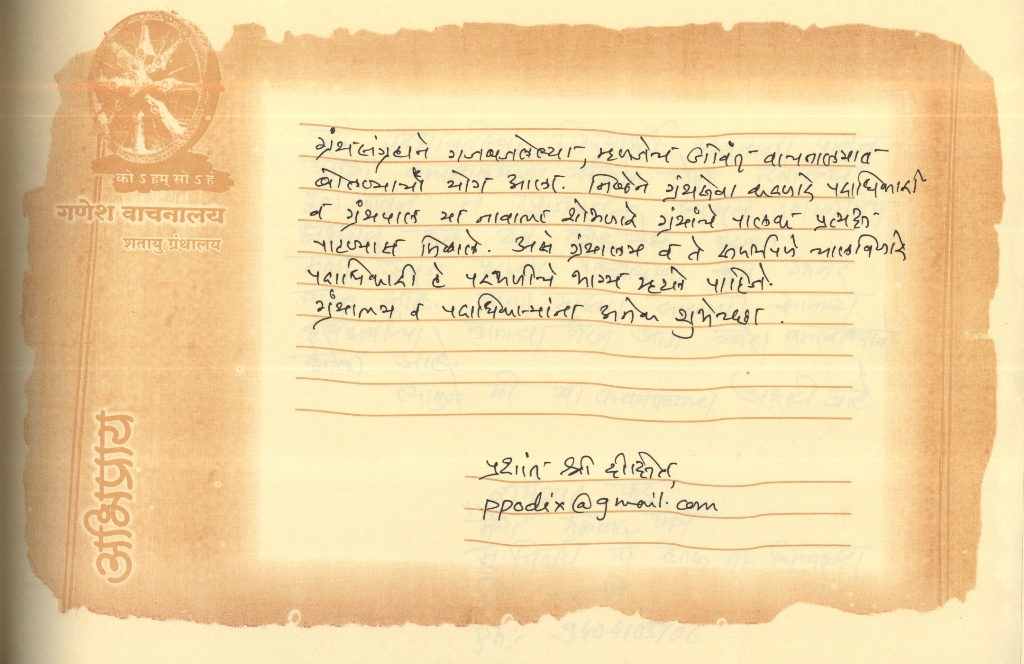 को ऽ हम् सो ऽ हं
गणेश वाचनालय
शतायु ग्रंथालय
अभिप्राय
ग्रंथसंग्रहाने गजबजलेल्या, म्हणजेच जीवंत वाचनालयात
बोलण्याचा योग आला. निष्ठेने ग्रंथसेवा करणारे पदाधिकारी
व ग्रंथपाल या नावाला शोभणारे ग्रंथांचे पालक प्रत्यक्ष
पाहण्यास मिळाले. असे ग्रंथालय व ते समर्थपणे चालविणारे
पदाधिकारी हे परभणीचे भाग्य म्हटले पाहिजे.
ग्रंथालय व पदाधिकाऱ्यांना अनेक शुभेच्छा.
प्रशांत श्री दीक्षित,
ppodix@gmail.com